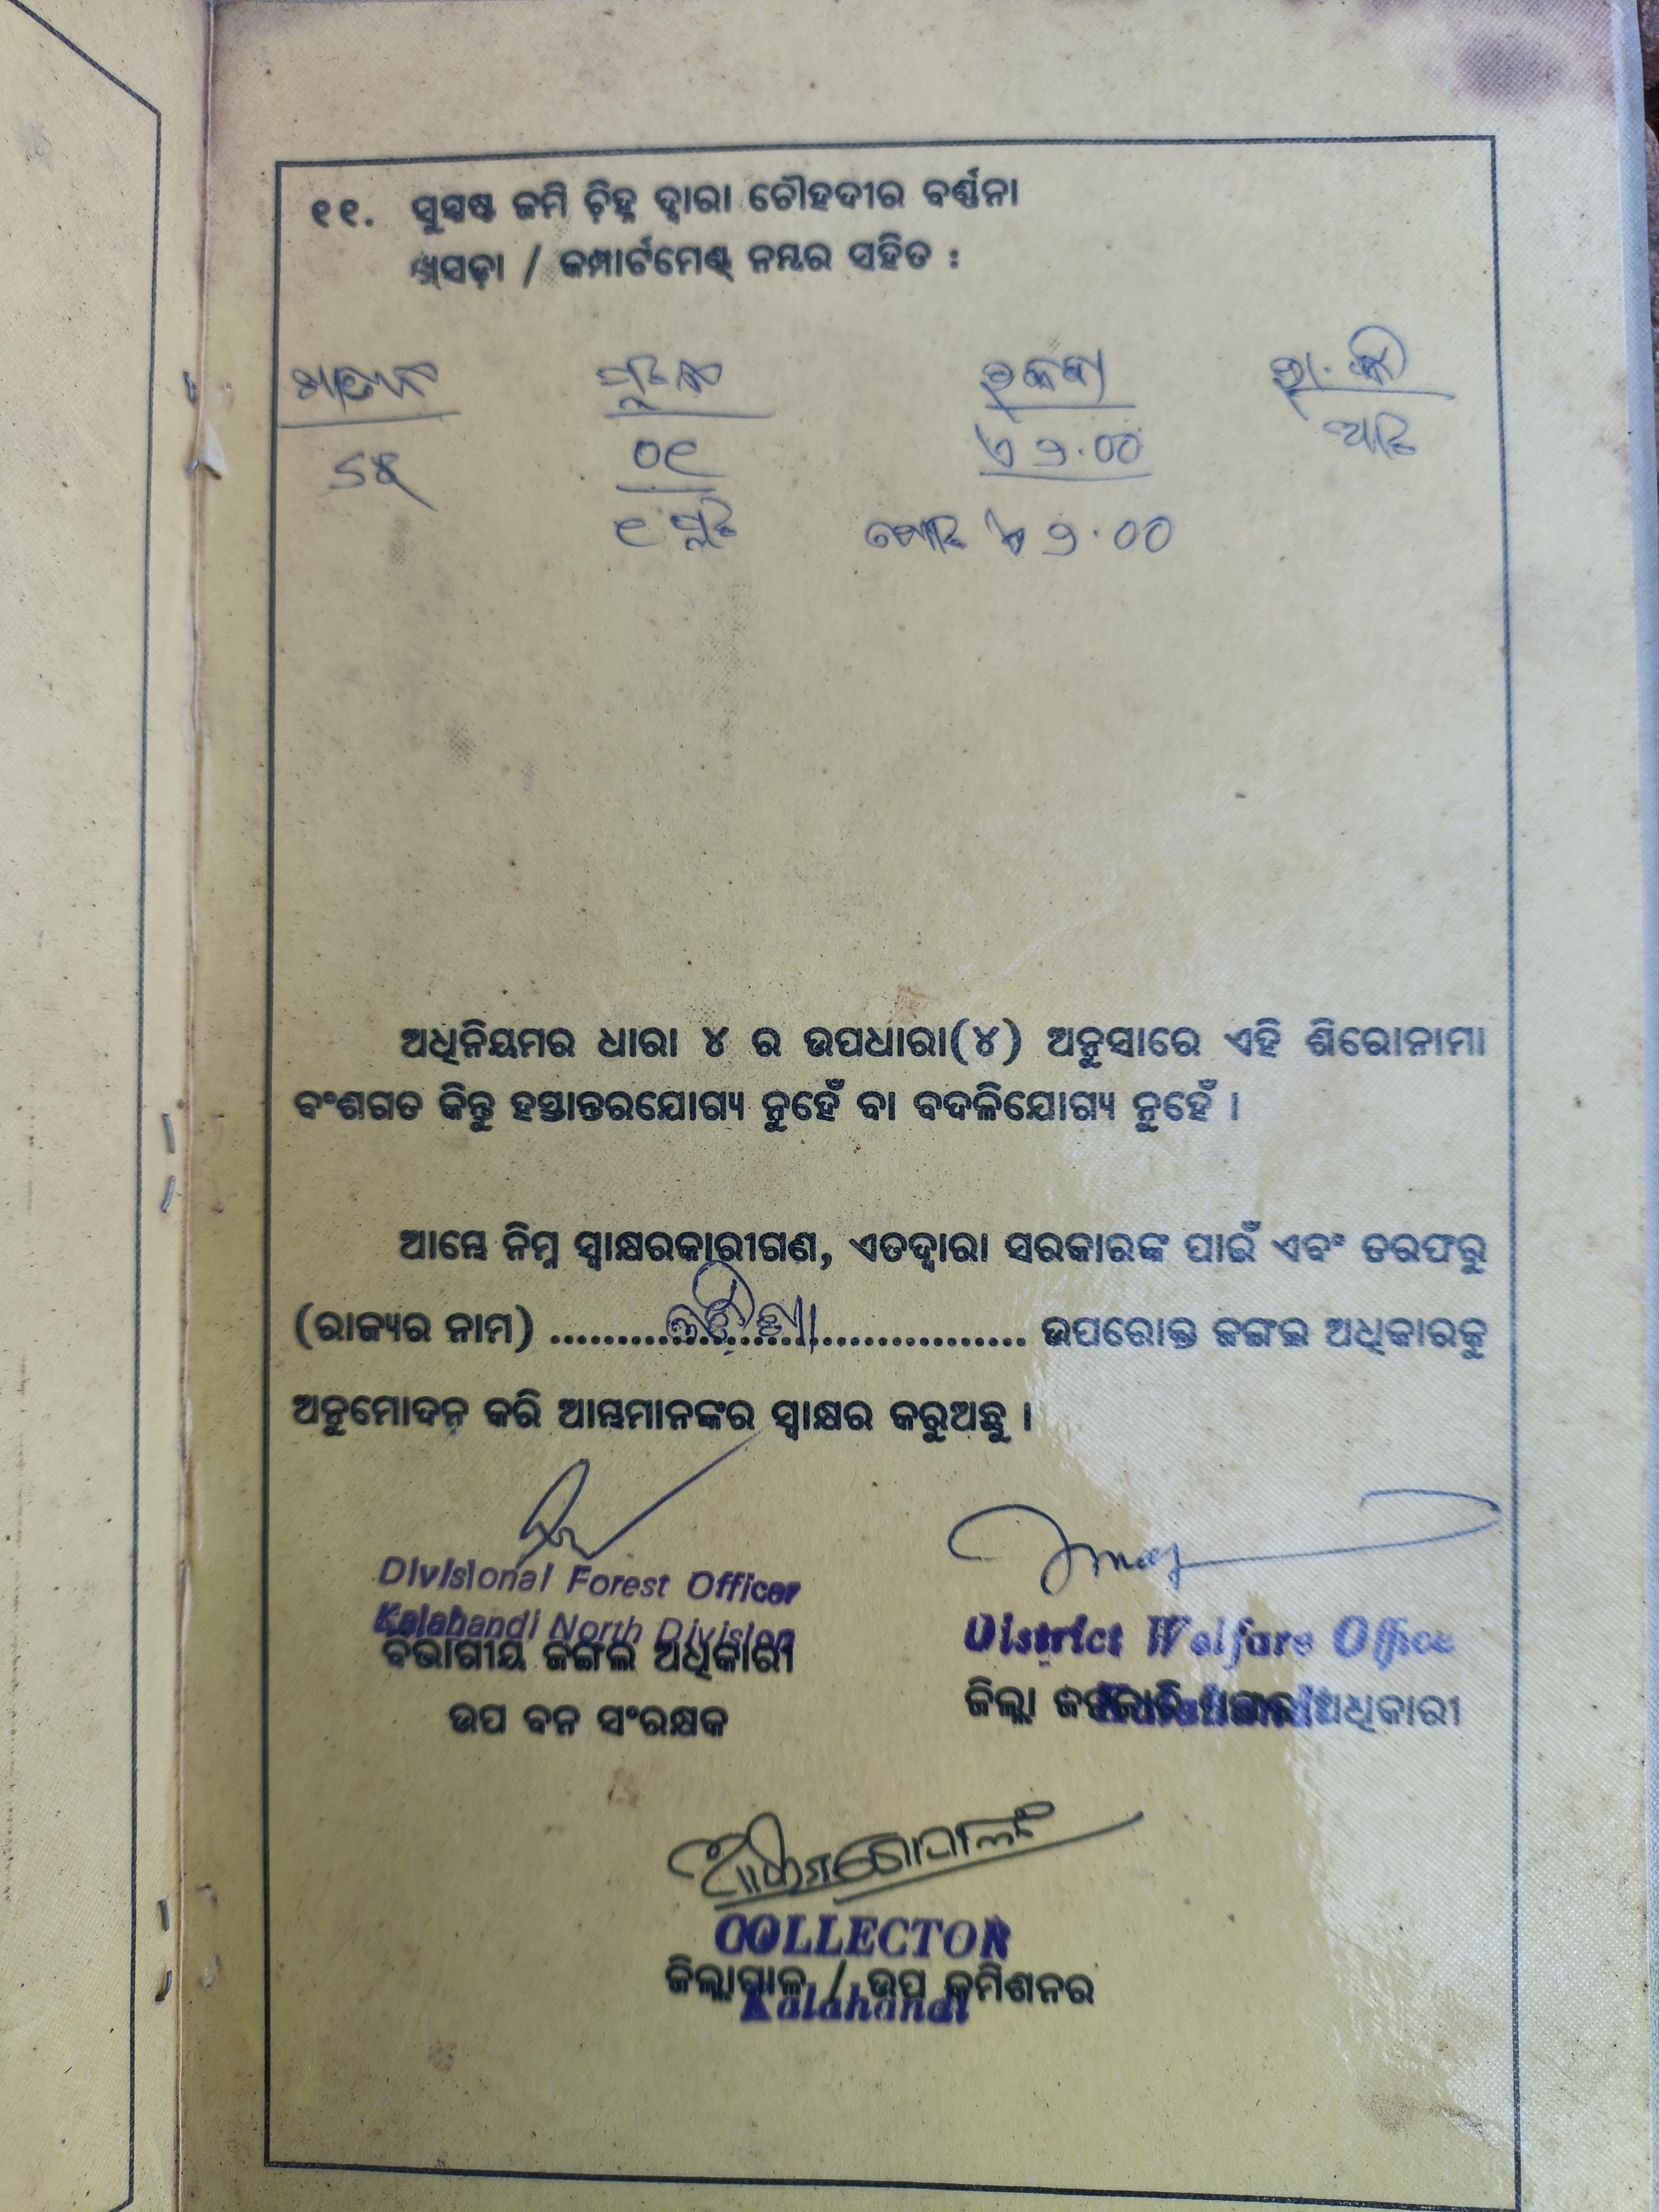 ୧୧. ସୁସ୍ପଷ୍ଟ ଜମି ଚିହ୍ନ ଦ୍ୱାରା ଚୌହଦୀର ବର୍ଣ୍ଣନା
ଖସଡ଼ା / କମ୍ପାର୍ଟମେଣ୍ଟ୍ ନମ୍ବର ସହିତ :
ପ୍ଲଟ ନଂ ରକବା
୦୧ ଏ ୨.୦୦
୧ ପ୍ଲଟ ମୋଟ ଏ ୨.୦୦
ଅଧିନିୟମର ଧାରା ୪ ର ଉପଧାରା(୪) ଅନୁସାରେ ଏହି ଶିରୋନାମା
ବଂଶଗତ କିନ୍ତୁ ହସ୍ତାନ୍ତରଯୋଗ୍ୟ ନୁହେଁ ବା ବଦଳିଯୋଗ୍ୟ ନୁହେଁ ।
ଆମ୍ଭେ ନିମ୍ନ ସ୍ୱାକ୍ଷରକାରୀଗଣ, ଏତଦ୍ୱାରା ସରକାରଙ୍କ ପାଇଁ ଏବଂ ତରଫରୁ
(ରାଜ୍ୟର ନାମ) .................................... ଉପରୋକ୍ତ ଜଙ୍ଗଲ ଅଧିକାରକୁ
ଅନୁମୋଦନ କରି ଆମ୍ଭମାନଙ୍କର ସ୍ୱାକ୍ଷର କରୁଅଛୁ ।
Divisional Forest Officer
Kalahandi North Division
District Welfare Office
ବିଭାଗୀୟ ଜଙ୍ଗଲ ଅଧିକାରୀ
ଜିଲ୍ଲା ଅଧିକାରୀ
ଉପ ବନ ସଂରକ୍ଷକ
COLLECTOR
ଜିଲ୍ଲାପାଳ / ଉପ କମିଶନର
Kalahandi